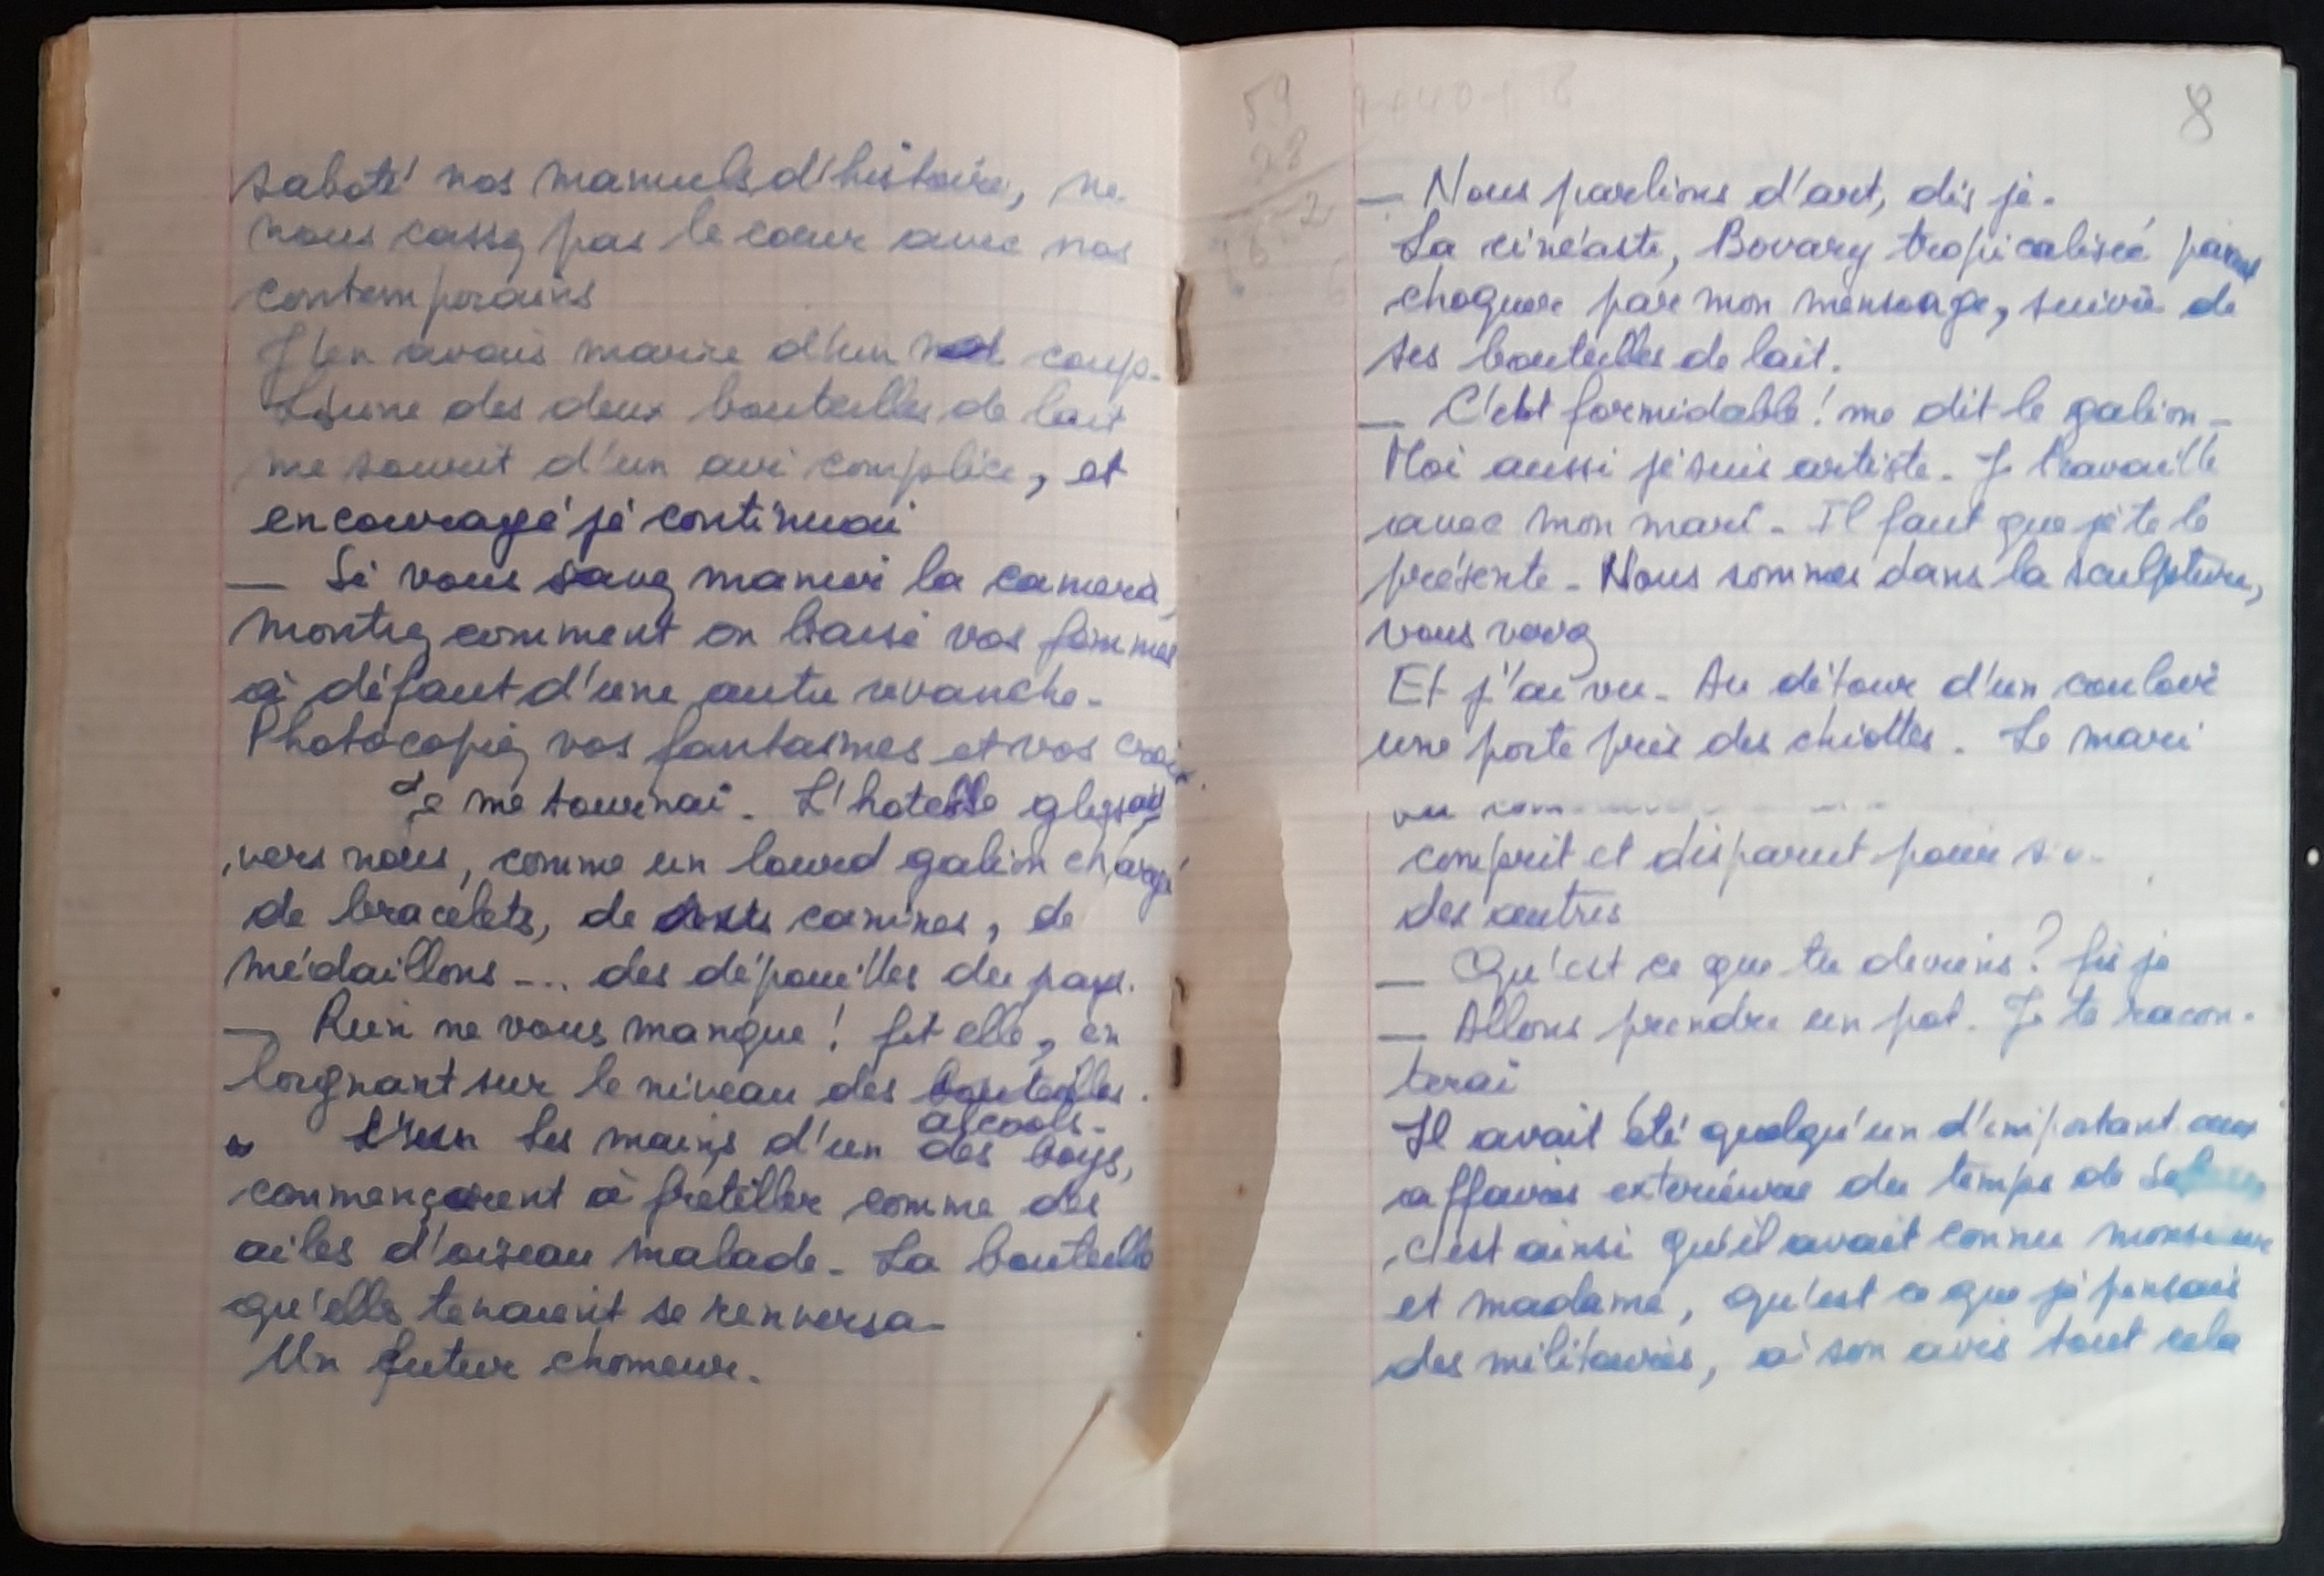 saboté nos manuels d'histoire, ne
nous cassez pas le cœur avec nos
contemporains
J'en avais marre d'un coup.
L'une des deux bouteilles de lait
me sourit d'un air complice, et
encouragé je continuai
— Si vous savez manier la camera,
montrez comment on baise vos femmes
à défaut d'une autre revanche.
Photocopiez vos fantasmes et vos
Je me tournai. L'hotesse glissait
vers nous, comme un lourd galion chargé
de bracelets, de camées, de
médaillons ... des dépouilles du pays.
— Rien ne vous manque ! fit elle, en
lorgnant sur le niveau des bouteilles.
alcools.
Les mains d'un des boys,
commencèrent à frétiller comme des
ailes d'oiseau malade. La bouteille
qu'elles tenaient se renversa.
Un futur chomeur.
59
28
8
— Nous parlions d'art, dis je.
La cinéaste, Bovary tropicalisée parut
choquée par mon mensonge, suivie de
ses bouteilles de lait.
— C'est formidable ! me dit le galion.
Moi aussi je suis artiste. Je travaille
avec mon mari. Il faut que je te le
présente. Nous sommes dans la sculpture,
vous voyez
Et j'ai vu. Au détour d'un couloir
une porte près des chiottes. Le mari
comprit et disparut pour
des autres
— Qu'est ce que tu deviens ? fis je
— Allons prendre un pot. Je te racon-
terai
Il avait été quelqu'un d'important aux
affaires exterieures du temps de
c'est ainsi qu'il avait connu monsieur
et madame, qu'est ce que je pensais
des militaires, à son avis tout cela